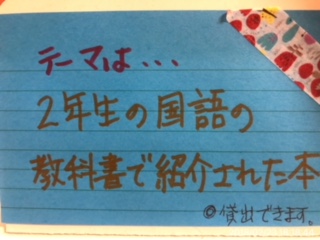 テーマは・・・
2年生の国語の
教科書で紹介された本
◎貸出できます。